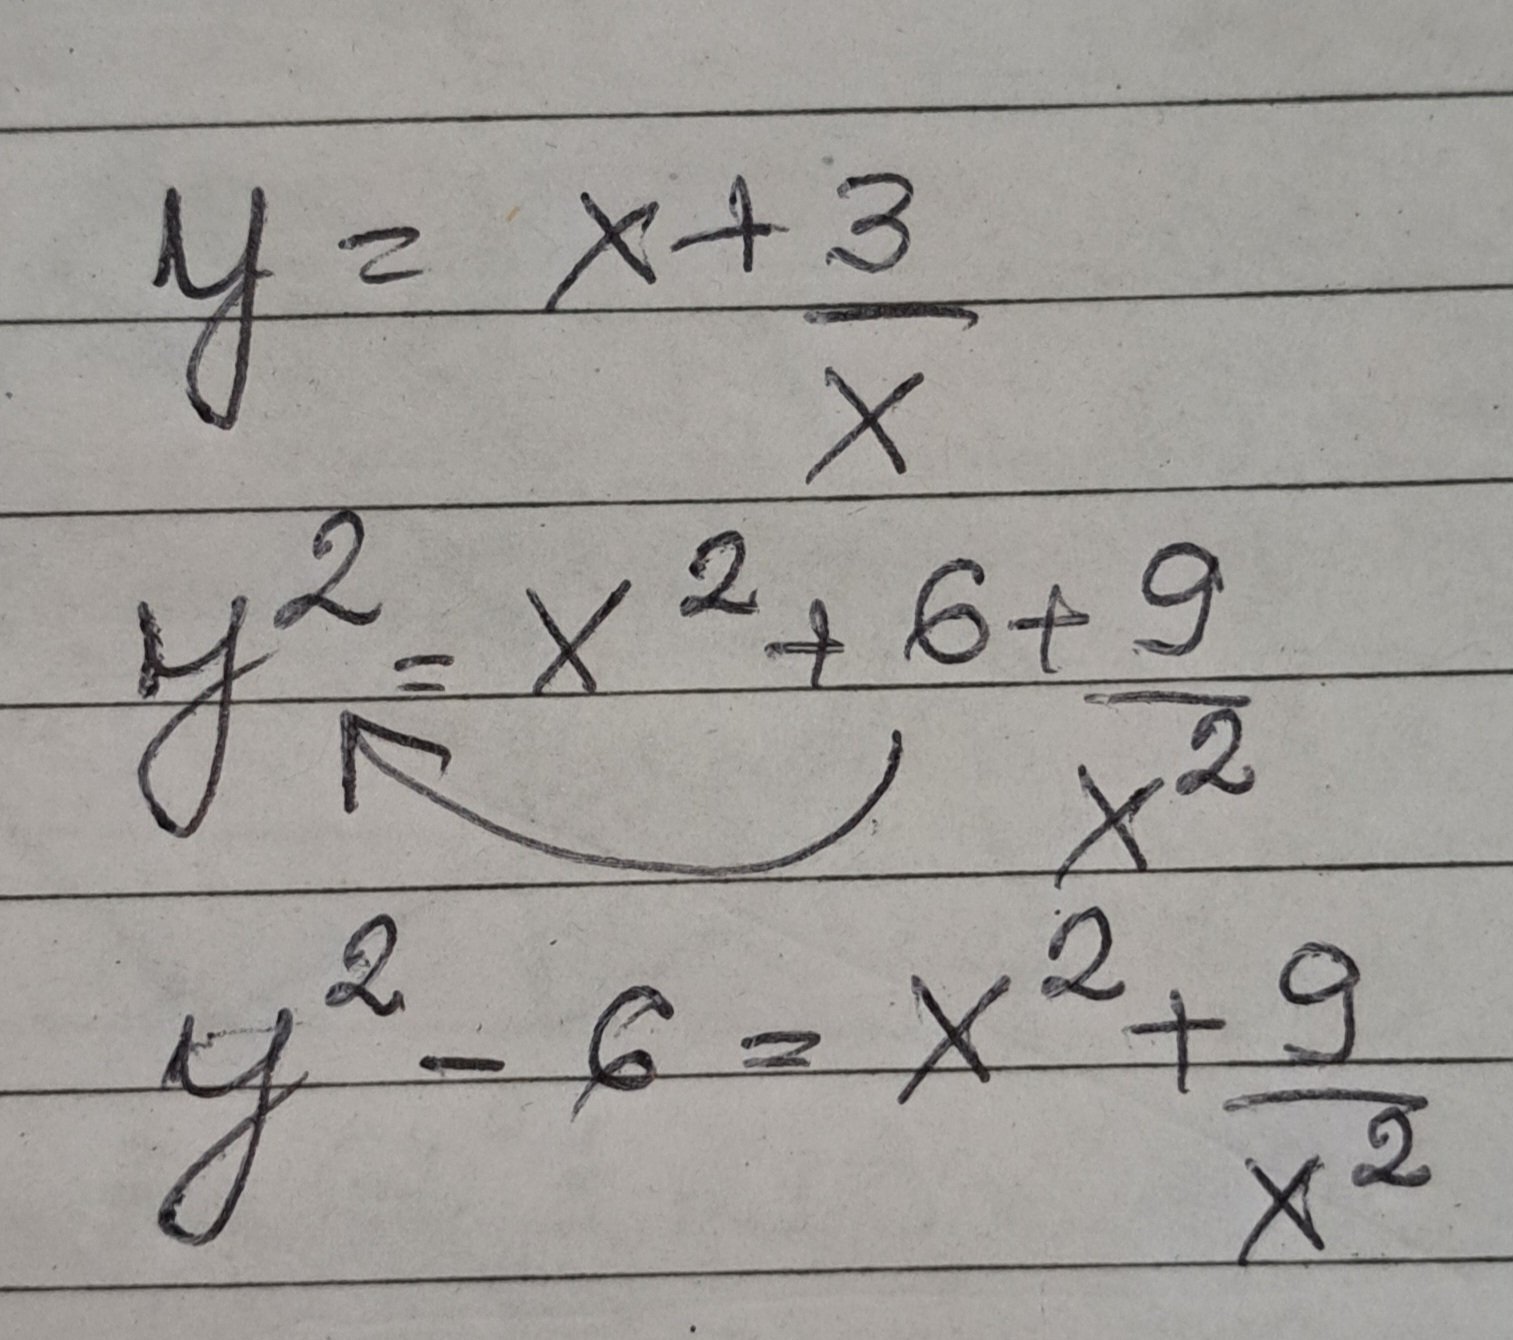 y = x + 3/x
y² = x² + 6 + 9/x²
y² - 6 = x² + 9/x²